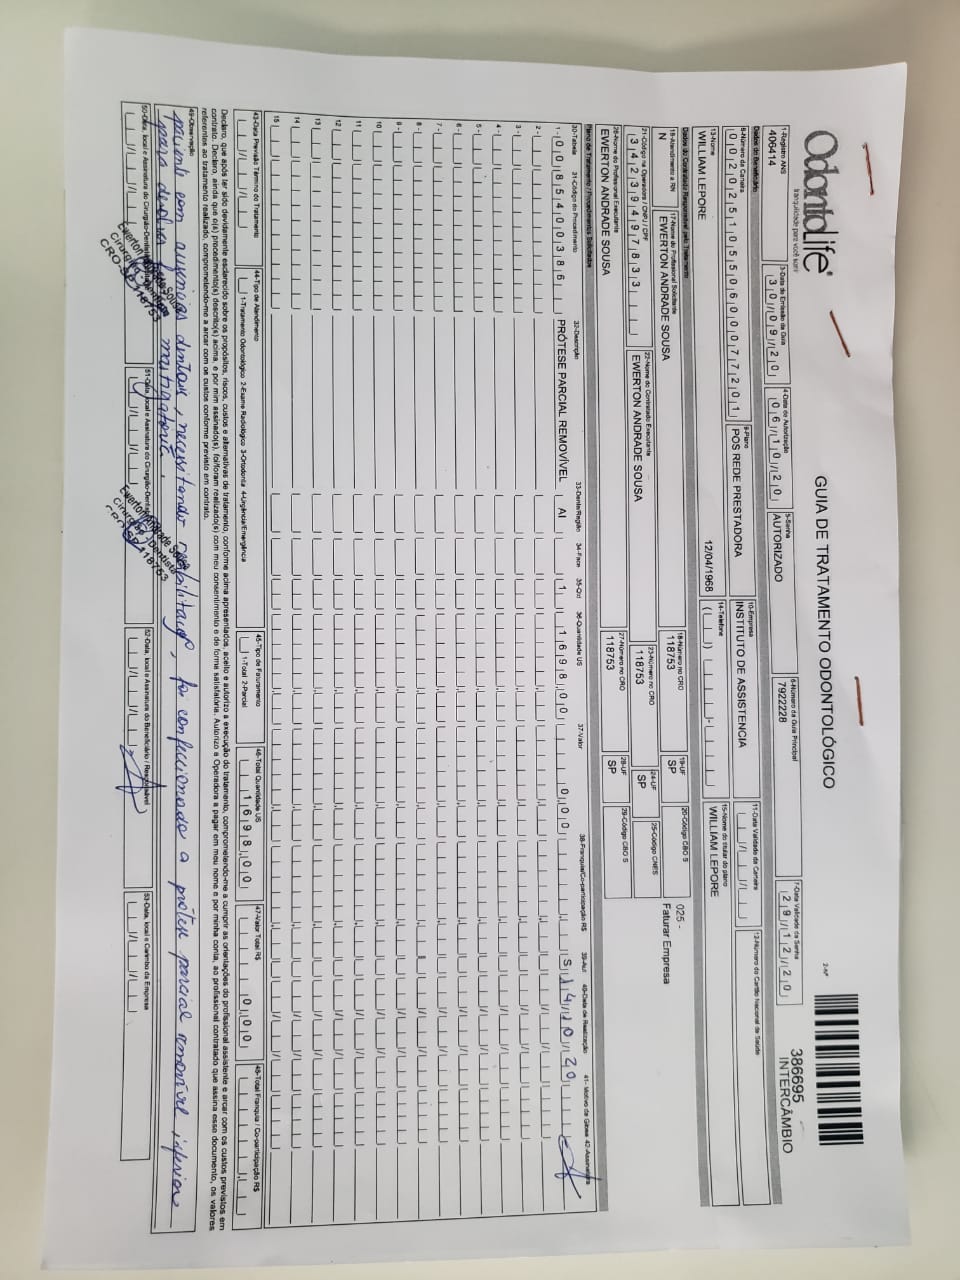 OdontoLife®
tranquilidade para você sorrir
GUIA DE TRATAMENTO ODONTOLÓGICO
2-Nº
386695
INTERCÂMBIO
1-Registro ANS
406414
3-Data de Emissão da Guia
30/09/20
4-Data de Autorização
06/10/20
5-Senha
AUTORIZADO
6-Número da Guia Principal
7922228
7-Data Validade da Senha
29/12/20
Dados do Beneficiário
8-Número da Carteira
00202510550600077201
9-Plano
POS REDE PRESTADORA
10-Empresa
INSTITUTO DE ASSISTENCIA
11-Data Validade da Carteira
12-Número do Cartão Nacional de Saúde
13-Nome
WILLIAM LEPORE
12/04/1968
14-Telefone
15-Nome do titular do plano
WILLIAM LEPORE
Dados do Contratado Responsável pelo Tratamento
16-Atendimento a RN
N
17-Nome do Profissional Solicitante
EWERTON ANDRADE SOUSA
18-Número no CRO
118753
19-UF
SP
20-Código CBO S
025 -
Faturar Empresa
21-Código na Operadora / CNPJ / CPF
34239497833
22-Nome do Contratado Executante
EWERTON ANDRADE SOUSA
23-Número no CRO
118753
24-UF
SP
25-Código CNES
26-Nome do Profissional Executante
EWERTON ANDRADE SOUSA
27-Número no CRO
118753
28-UF
SP
29-Código CBO S
Plano de Tratamento / Procedimentos Solicitados
30-Tabela 31-Código do Procedimento 32-Descrição 33-Dente/Região 34-Face 35-Qtd 36-Quantidade US 37-Valor 38-Franquia/Co-participação R$ 39-Aut 40-Data de Realização 41- Motivo da Glosa 42-Assinatura
1- 00 85400386 PRÓTESE PARCIAL REMOVÍVEL AI 1 1698,00 0,00 S 14/10/20
2 -
3 -
4 -
5 -
6 -
7 -
8 -
9 -
10
11
12
13
14
15
43-Data Previsão Término do Tratamento
44-Tipo de Atendimento
1-Tratamento Odontológico 2-Exame Radiológico 3-Ortodontia 4-Urgência/Emergência
45-Tipo de Faturamento
1-Total 2-Parcial
46-Total Quantidade US
1698,00
47-Valor Total R$
0,00
48-Total Franquia / Co-participação R$
Declaro, que após ter sido devidamente esclarecido sobre os propósitos, riscos, custos e alternativas de tratamento, conforme acima apresentados, aceito e autorizo a execução do tratamento, comprometendo-me a cumprir as orientações do profissional assistente e arcar com os custos previstos em
contrato. Declaro, ainda que o(s) procedimento(s) descrito(s) acima, e por mim assinado(s), foi/foram realizado(s) com meu consentimento e de forma satisfatória. Autorizo a Operadora a pagar em meu nome e por minha conta, ao profissional contratado que assina esse documento, os valores
referentes ao tratamento realizado, comprometendo-me a arcar com os custos conforme previsto em contrato.
49-Observação
paciente com ausencias dentais, necessitando reabilitação, foi confeccionado a prótese parcial removível inferior
para devolver mastigatória.
50-Data, local e Assinatura do Cirurgião-Dentista
51-Data, local e Assinatura do Cirurgião-Dentista
52-Data, local e Assinatura do Beneficiário / Responsável
53-Data, local e Carimbo da Empresa
Ewerton Andrade Sousa
Cirurgião Dentista
CRO-SP 118753
Ewerton Andrade Sousa
Cirurgião Dentista
CRO-SP 118753